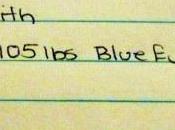 ith
105 lbs Blue